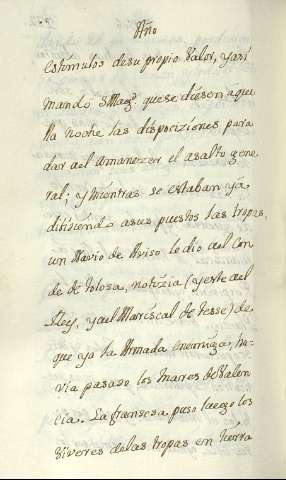 Año
estimulos desu propio Valor, yasi
mandó SMagd. quese diesen aque
lla noche las disposiziones para
dar al Amanezer el asalto gene
ral; y mientras se estaban ya
diriiendo asus puestos las tropas,
un Navio de Aviso le dio al Con
de de Tolosa, notizia (yeste al
Rey, yal Mariscal de Tesse) de
que ya la Armada enemiga, ha-
via pasado los mares de Valen
cia. La fransesa puso luego los
viveres delas tropas en tierra